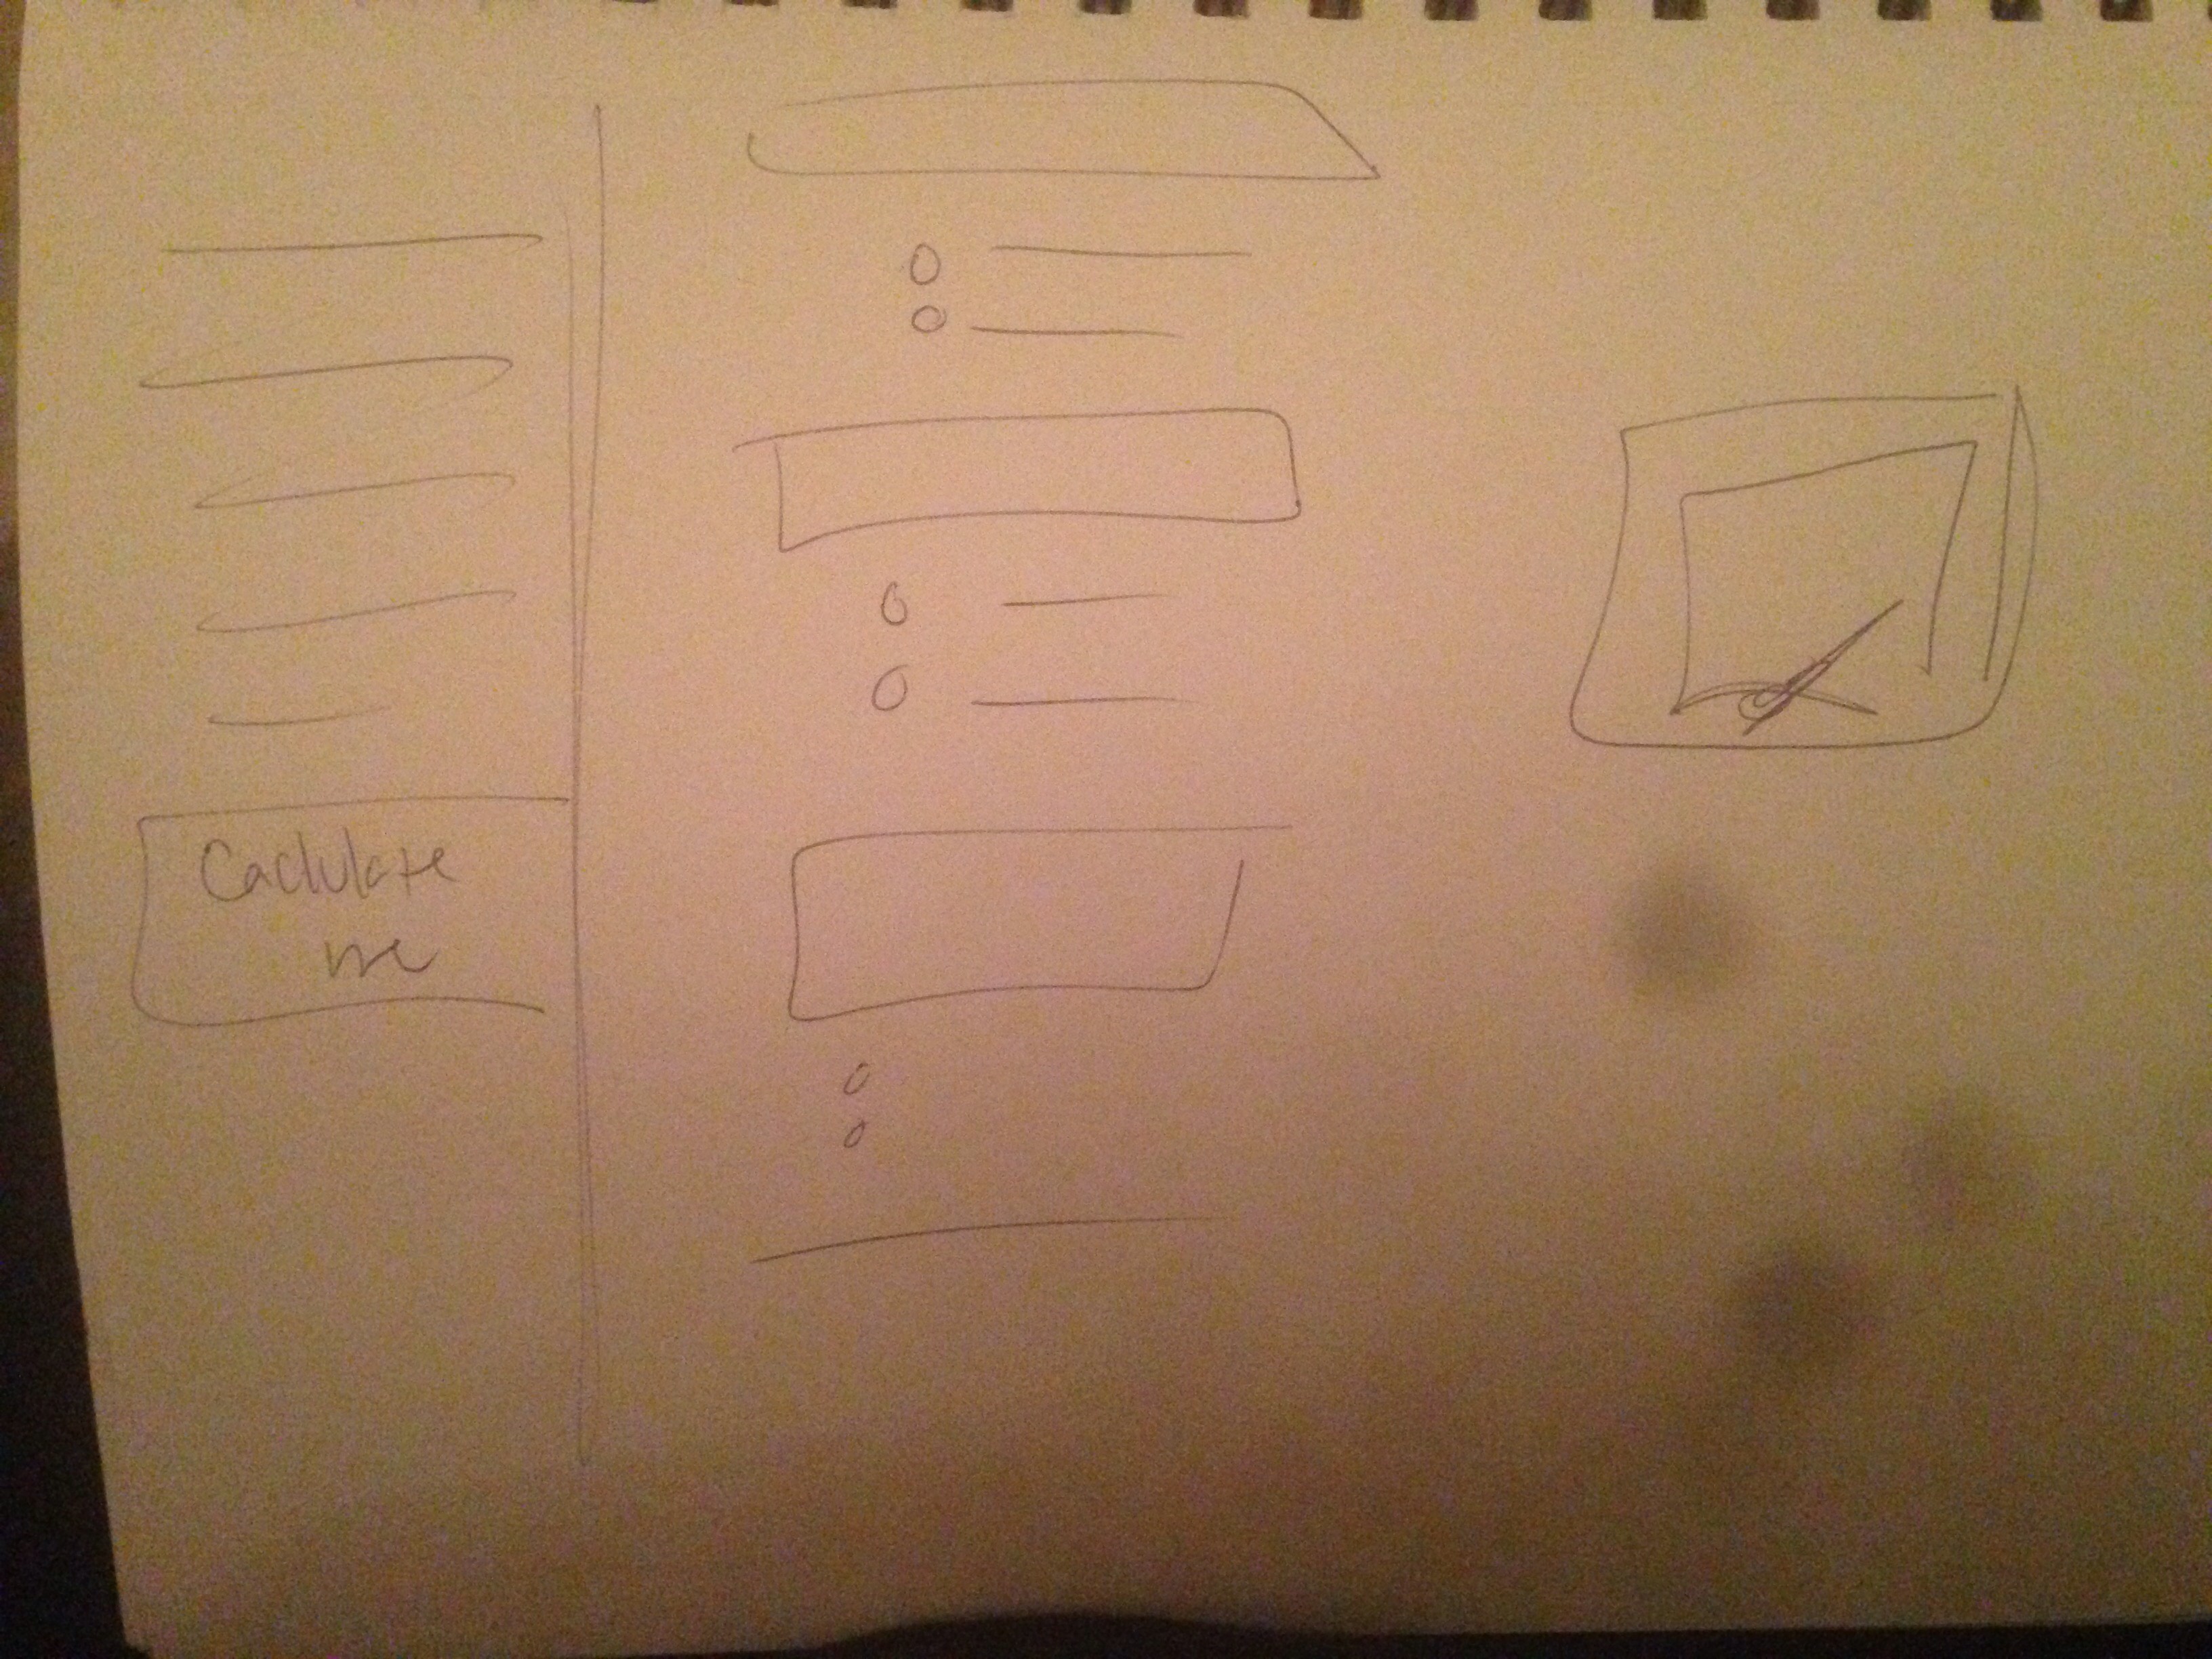 Caclulate
me